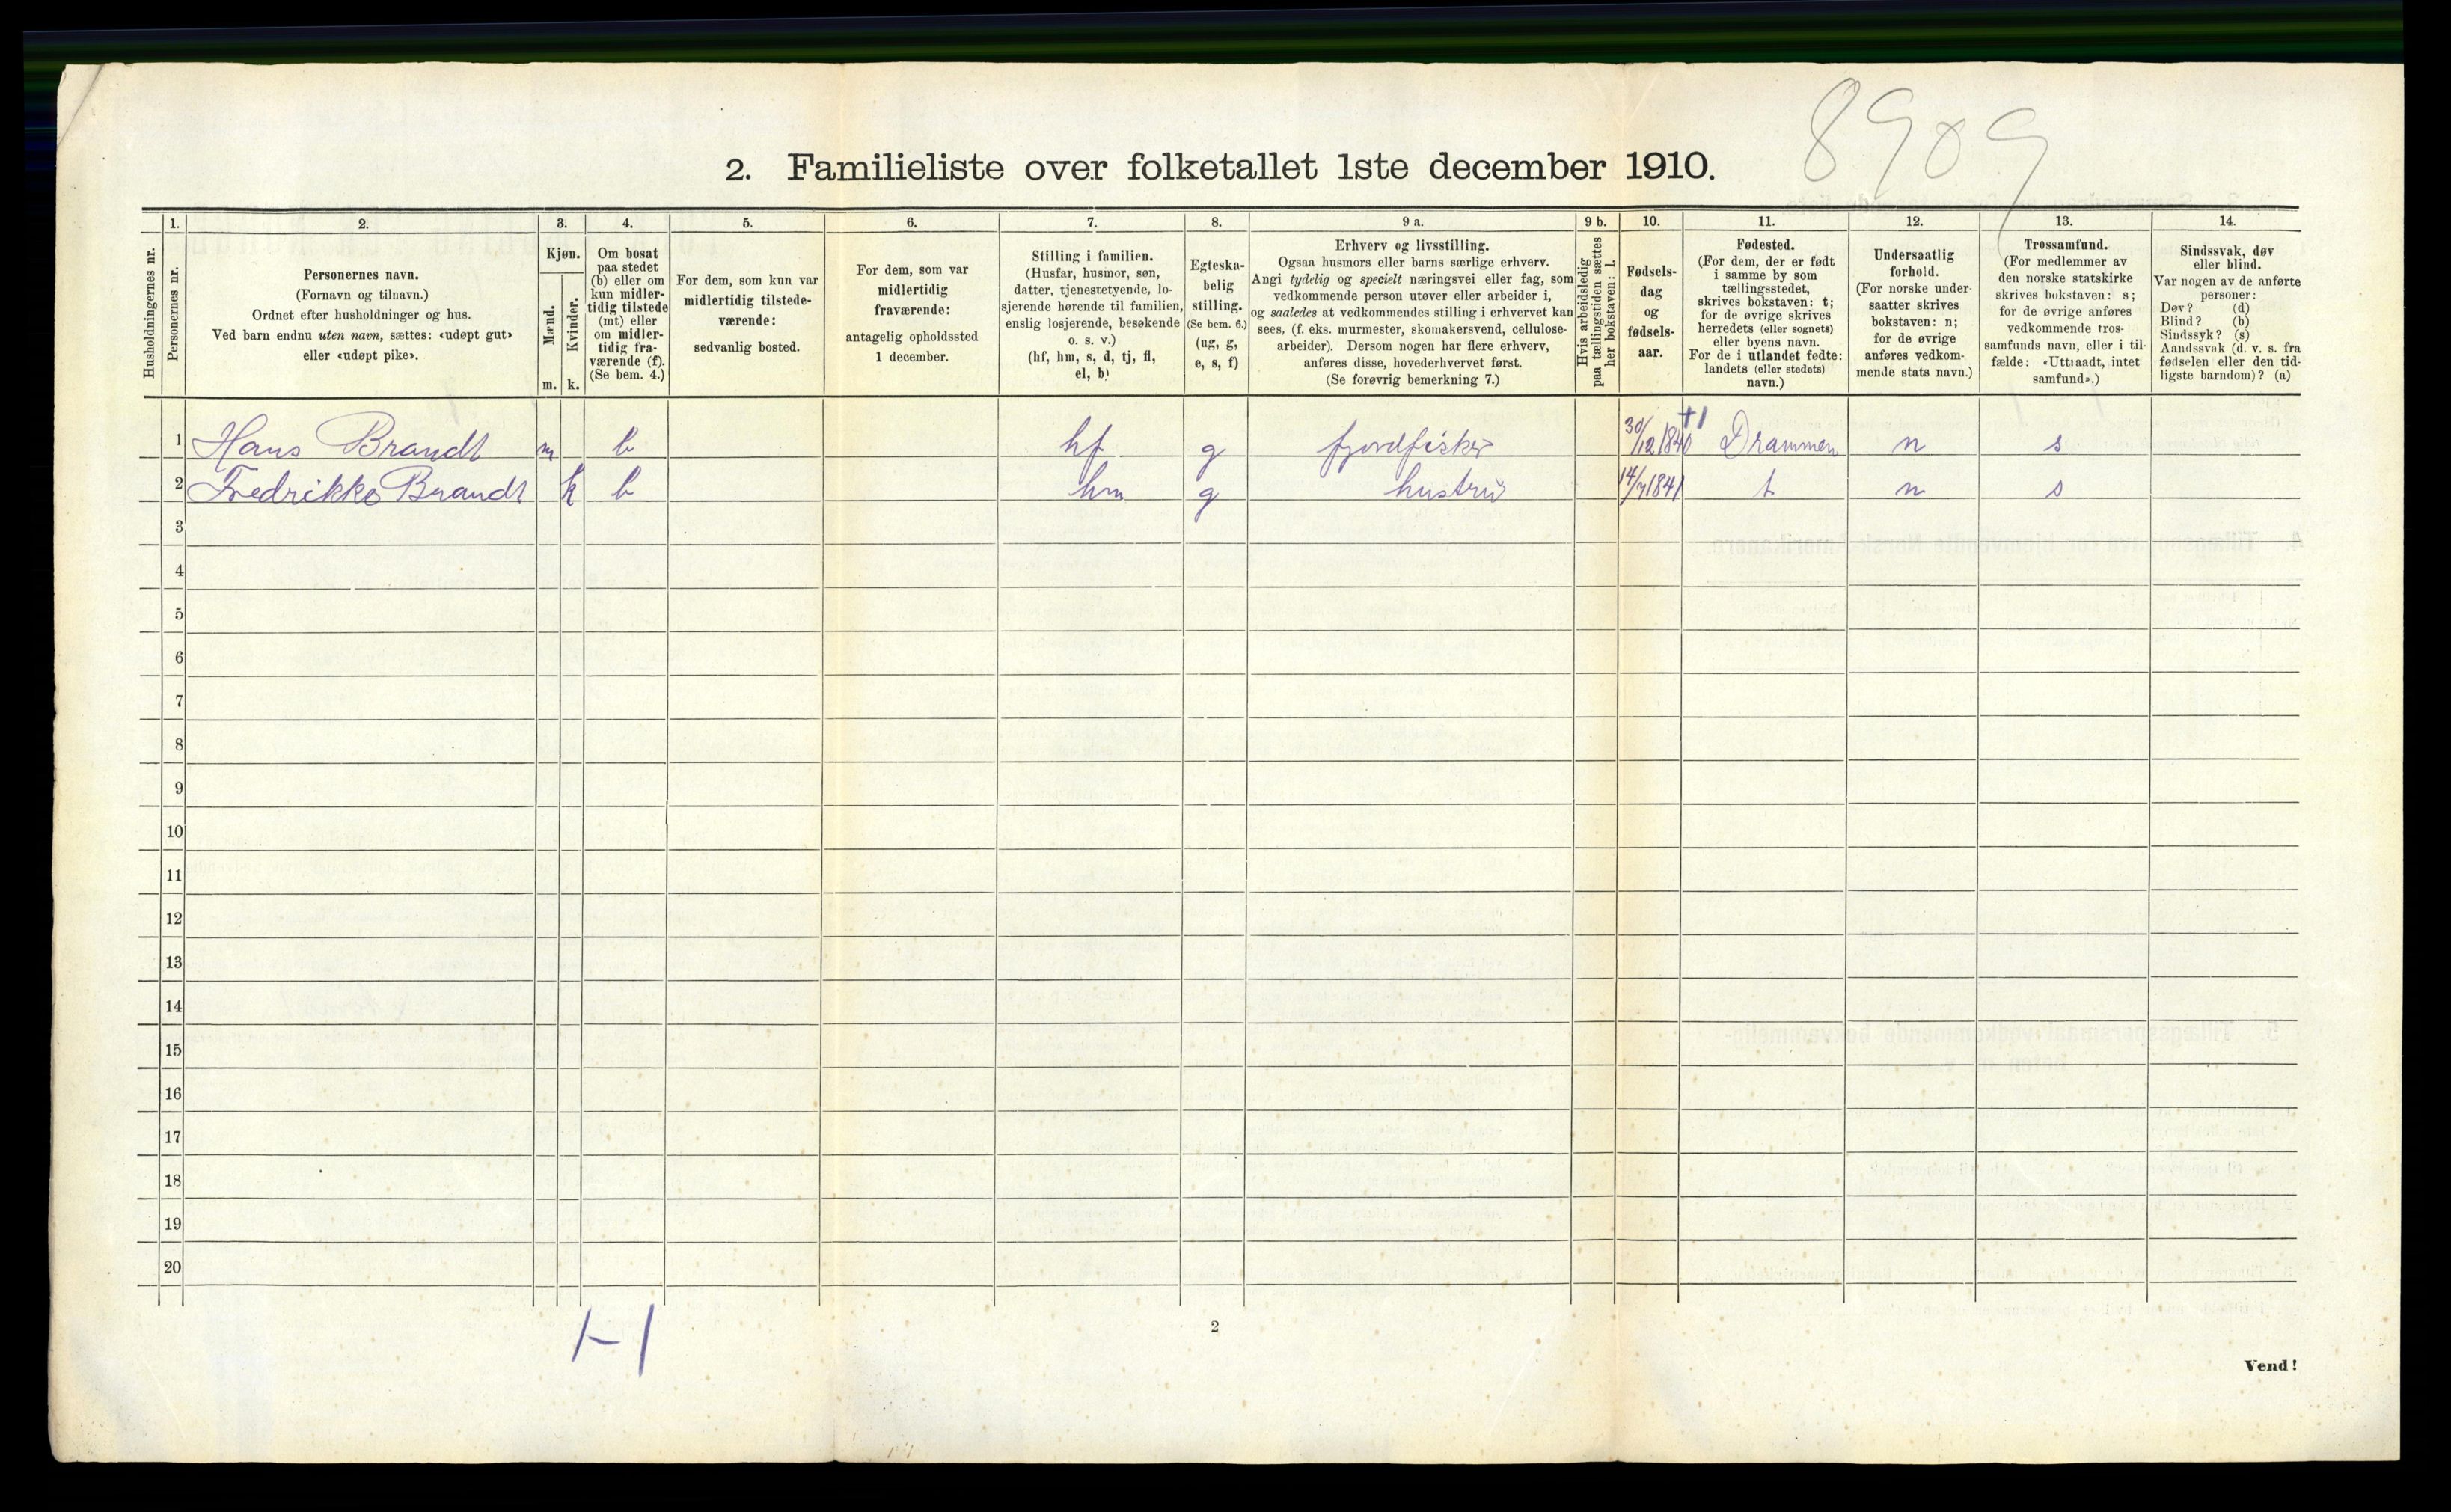 8909
2. Familieliste over folketallet 1ste december 1910.
Husholdningernes nr.
1.
Personernes nr.
2.
Personernes navn.
(Fornavn og tilnavn.)
Ordnet efter husholdninger og hus.
Ved barn endnu uten navn, sættes: «udøpt gut»
eller «udøpt pike».
3.
Kjøn.
Mænd.
Kvinder.
m.
k.
4.
Om bosat
paa stedet
(b) eller om
kun midler-
tidig tilstede
(mt) eller
om midler-
tidig fra-
værende (f).
(Se bem. 4.)
5.
For dem, som kun var
midlertidig tilstede-
værende:
sedvanlig bosted.
6.
For dem, som var
midlertidig
fraværende:
antagelig opholdssted
1 december.
7.
Stilling i familien.
(Husfar, husmor, søn,
datter, tjenestetyende, lo-
sjerende hørende til familien,
enslig losjerende, besøkende
o. s. v.)
(hf, hm, s, d, tj, fl,
el, b)
8.
Egteska-
belig
stilling.
(Se bem. 6.)
(ug, g,
e, s, f)
9 a.
Erhverv og livsstilling.
Ogsaa husmors eller barns særlige erhverv.
Angi tydelig og specielt næringsvei eller fag, som
vedkommende person utøver eller arbeider i,
og saaledes at vedkommendes stilling i erhvervet kan
sees, (f. eks. murmester, skomakersvend, cellulose-
arbeider). Dersom nogen har flere erhverv,
anføres disse, hovederhvervet først.
(Se forøvrig bemerkning 7.)
9 b.
Hvis arbeidsledig
paa tællingstiden sættes
her bokstaven: l.
10.
Fødsels-
dag
og
fødsels-
aar.
11.
Fødested.
(For dem, der er født
i samme by som
tællingsstedet,
skrives bokstaven: t;
for de øvrige skrives
herredets (eller sognets)
eller byens navn.
For de i utlandet fødte:
landets (eller stedets)
navn.)
12.
Undersaatlig
forhold.
(For norske under-
saatter skrives
bokstaven: n;
for de øvrige
anføres vedkom-
mende stats navn.)
13.
Trossamfund.
(For medlemmer av
den norske statskirke
skrives bokstaven: s;
for de øvrige anføres
vedkommende tros-
samfunds navn, eller i til-
fælde: «Uttraadt, intet
samfund».)
14.
Sindssvak, døv
eller blind.
Var nogen av de anførte
personer:
Døv? (d)
Blind? (b)
Sindssyk? (s)
Aandssvak (d. v. s. fra
fødselen eller den tid-
ligste barndom)? (a)
1 Hans Brandt m b hf g fjordfisker 30/12 1840 +1 Drammen n s
2 Fredrikke Brandt k b hm g hustru 14/7 1841 t n s
3
4
5
6
7
8
9
10
11
12
13
14
15
16
17
18
19
20
1-1
2
Vend!